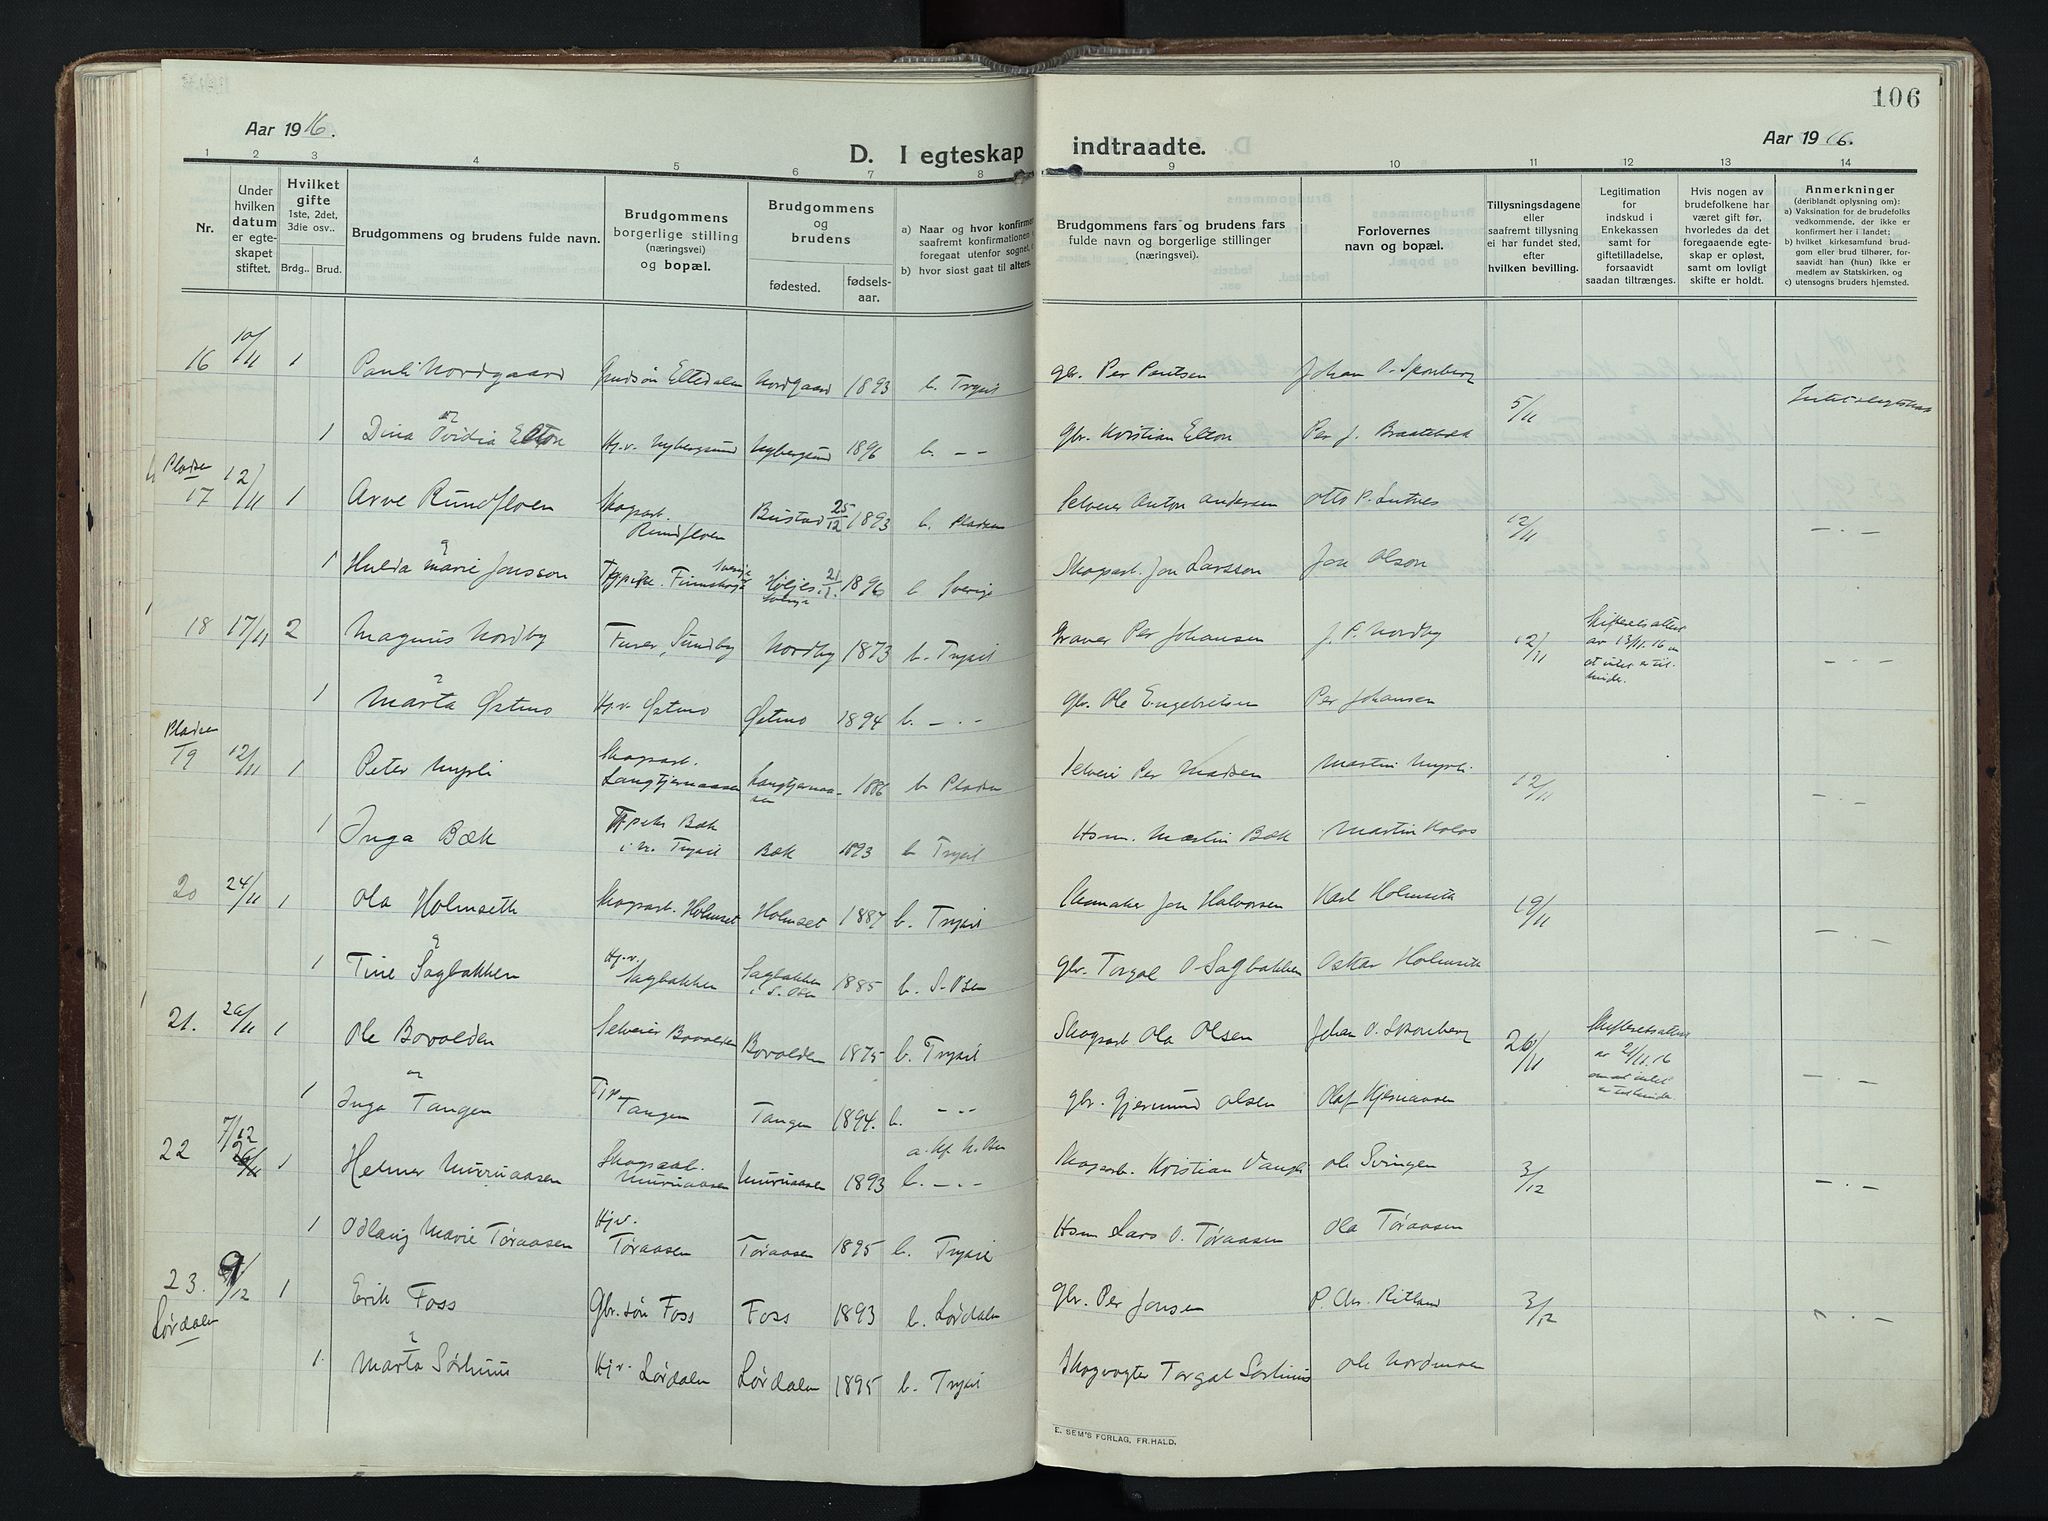 106
Aar 1916.
D. I egteskap indtraadte.
Aar 1916.
1 2 3 4 5 6 7 8 9 10 11 12 13 14
Nr.
Under hvilken datum er egteskapet stiftet.
Hvilket gifte 1ste, 2det, 3die osv..
Brdg.. Brud.
Brudgommens og brudens fulde navn.
Brudgommens borgerlige stilling (næringsvei) og bopæl.
Brudgommens og brudens
fødested.
fødselsaar.
a) Naar og hvor konfirmer
saafremt konfirmationen
foregaat utenfor sognet,
b) hvor sidst gaat til alters.
Brudgommens fars og brudens fars fulde navn og borgerlige stillinger (næringsvei).
Forlovernes navn og bopæl.
Tillysningsdagene eller saafremt tillysning ei har fundet sted, efter hvilken bevilling.
Legitimation for indskud i Enkekassen samt for giftetilladelse, forsaavidt saadan tiltrænges.
Hvis nogen av brudefolkene har været gift før, hvorledes da det foregaaende egteskap er opløst, samt om lovligt skifte er holdt.
Anmerkninger (deriblandt oplysning om):
a) Vaksination for de brudefolks vedkommende, der ikke er konfirmert her i landet;
b) hvilket kirkesamfund brudgom eller brud tilhører, forsaavidt han (hun) ikke er medlem av Statskirken, og
c) utensogns bruders hjemsted.
16 10/11 1 Paul Nordgaard Nordgaard 1893 b. Trysil gbr. Per Paulsen Johan O. Skonberg 5/11
1 Dina Elton Hj.v. Nybergsund Nybergsund 1896 b. - - gbr. Kristian Elton Per J.
Pladsen
17 12/11 1 Arve Rundfloen Skogsarb. Rundfloen Bustad 25/12 1893 b. Pladsen Selveier Anton Andersen Otto P. Lutnes 12/11 - . -
1 Hulda Marie Jonsson Sverige Høljes Sverige 21/1 1896 b Sverige Skogsarb. Jon Larsson Jon Olson
18 17/11 2 Magnus Nordby Sundby Nordby 1873 b. Trysil Graver Per Johansen J. P. Nordby 12/11 av 13/11.16 - . -
1 Marta Østmo Hj.v. Østmo Østmo 1894 b. - . - gbr. Ole Engebretsen Per Johansen
Pladsen
19 12/11 1 Peter Myrli Skogsarb. Langtjernaasen Langtjernaasen 1886 b Pladsen Selveier Per Madsen Martin Myrli 12/11 - . -
1 Inga Bæk Bæk i N. Trysil Bæk 1893 b Trysil Hsm. Martin Bæk Martin
20 24/11 1 Ola Holmseth Skogsarb. Holmset Holmset 1887 b. Trysil Skomaker Jon Halvorsen Karl Holmseth 19/11 - . -
1 Tine Sagbakken Hj.v. Sagbakken Sagbakken i S. Osen 1885 b. S. Osen gbr. Torgal O Sagbakken Oskar Holmseth
21. 26/11 1 Ole Bovolden Selveier Bovolden Bovolden 1875 b. Trysil Skogsarb. Ola Olsen Johan O. Skonberg 26/11 - . -
1 Inga Tangen Tangen Tangen 1894. b. - - gbr. Gjermund Olsen Olaf
22 7/12 1 Helmer Muruaasen Skogsarb. Muruaasen Muruaasen 1893 b. - . - Skogsarb. Kristian Ole Svingen 3/12 - . -
1 Odlaug Marie Tøraasen Hj.v. Tøraasen Tøraasen 1895 b. Trysil Hsm Lars O. Tøraasen Ola Tøraasen
23. 9/12 1 Erik Foss Gbr. søn Foss Foss 1893 b. Lørdalen gbr. Per Jonsen P. Chr. Ritland 3/12 - . -
Lørdalen
1. Marta Sørhuus Hj.v. Lørdalen Lørdalen 1895 b. Trysil Skogvogter Torgal Sørhuus Ole Nordmoen
E. SEM'S FORLAG, FR.HALD.